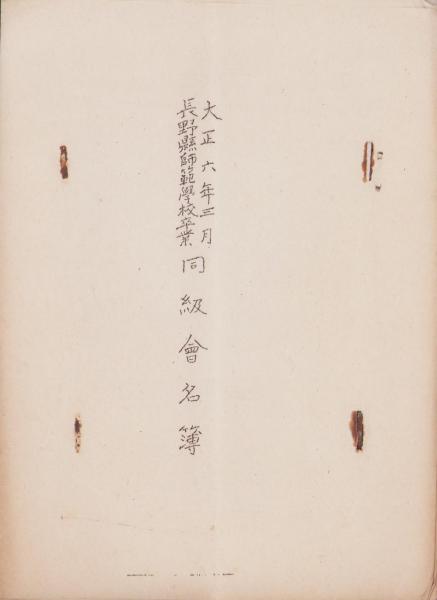 大正六年三月
長野縣師範學校卒業
同級會名簿